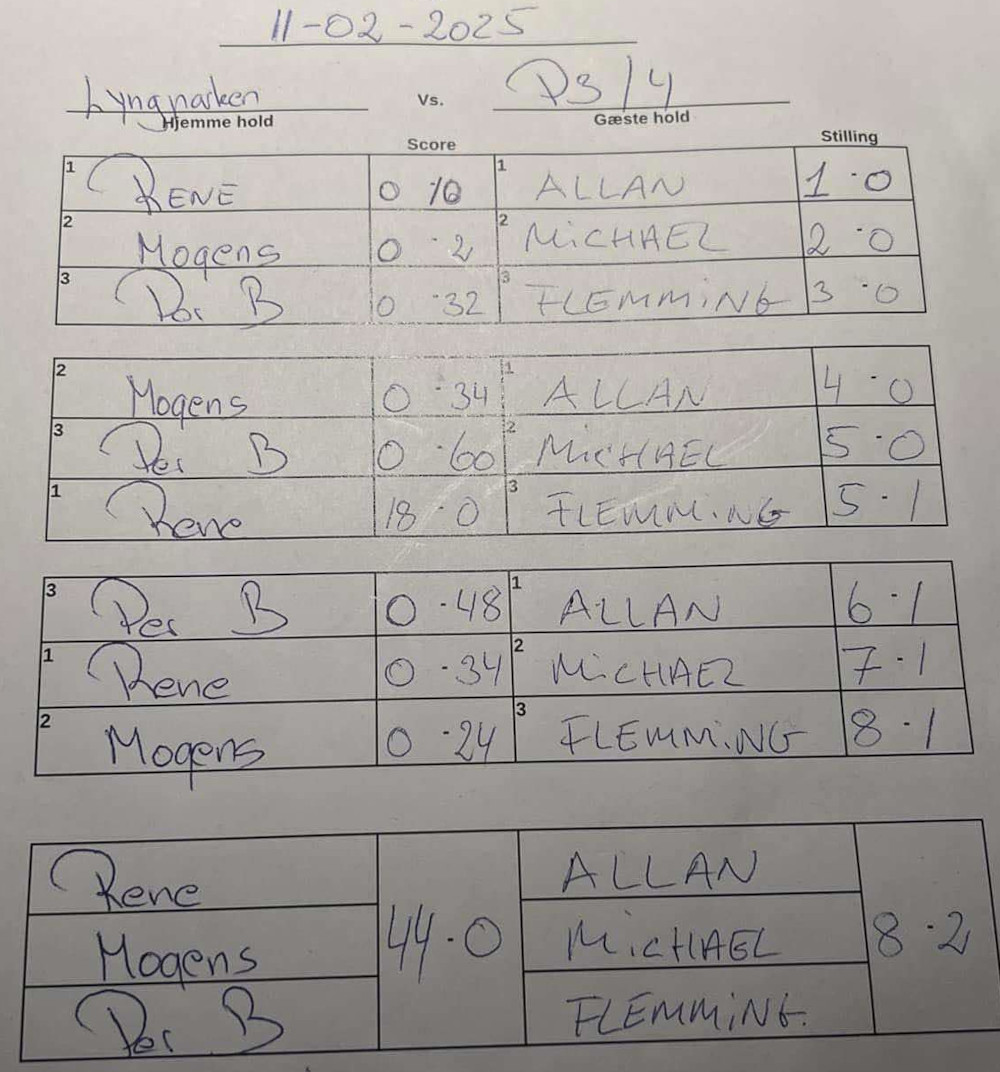 11-02-2025
Lyngparken Vs. P3/4
Hjemme hold Gæste hold
Score Stilling
1 RENE 0 10 1 ALLAN 1·0
2 Mogens 0·2 2 MiCHAEL 2·0
3 Per B 0·32 3 FLEMMiNG 3·0
2 Mogens 0·34 1 ALLAN 4·0
3 Per B 0·60 2 MiCHAEL 5·0
1 Rene 18·0 3 FLEMMiNG 5·1
3 Per B 0·48 1 ALLAN 6·1
1 Rene 0·34 2 MiCHAEL 7·1
2 Mogens 0·24 3 FLEMMiNG 8·1
Rene ALLAN
Mogens 44·0 MiCHAEL 8·2
Per B FLEMMiNG.